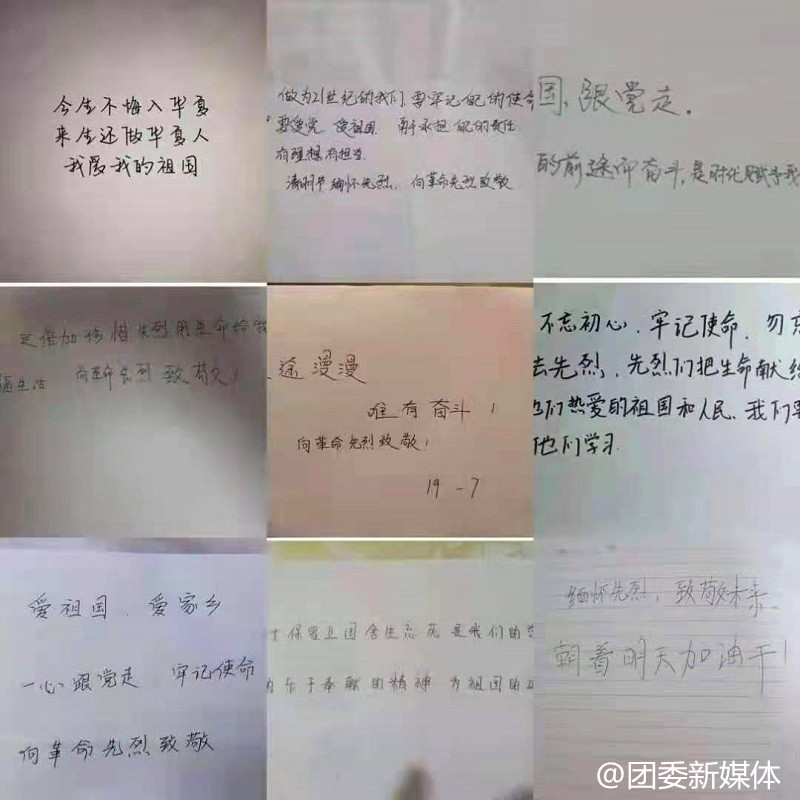 今生不悔入华夏
来生还做华夏人
我爱我的祖国
做为21世纪的我们,要牢记自己的使命
要爱党 爱祖国 勇于承担自己的责任
有理想有担当
清明节缅怀先烈,向革命先烈致敬
国,跟党走.
的前途而奋斗,是时代赋予我
更倍加珍惜先烈用生命给
福生活 向革命先烈致敬!
途漫漫
唯有奋斗!
向革命先烈致敬!
19-7
不忘初心,牢记使命,勿忘
去先烈,先烈们把生命献给
他们热爱的祖国和人民,我们要
他们学习.
爱祖国、爱家乡
一心跟党走 牢记使命
向革命先烈致敬
保家卫国舍生忘死是我们的
乐于奉献的精神 为祖国的
缅怀先烈,致敬未来.
朝着明天加油干!
@团委新媒体